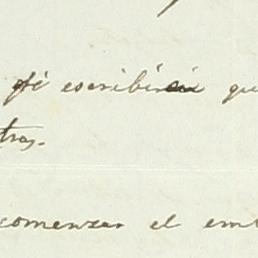 escribir qu
tras.
comenzar el em